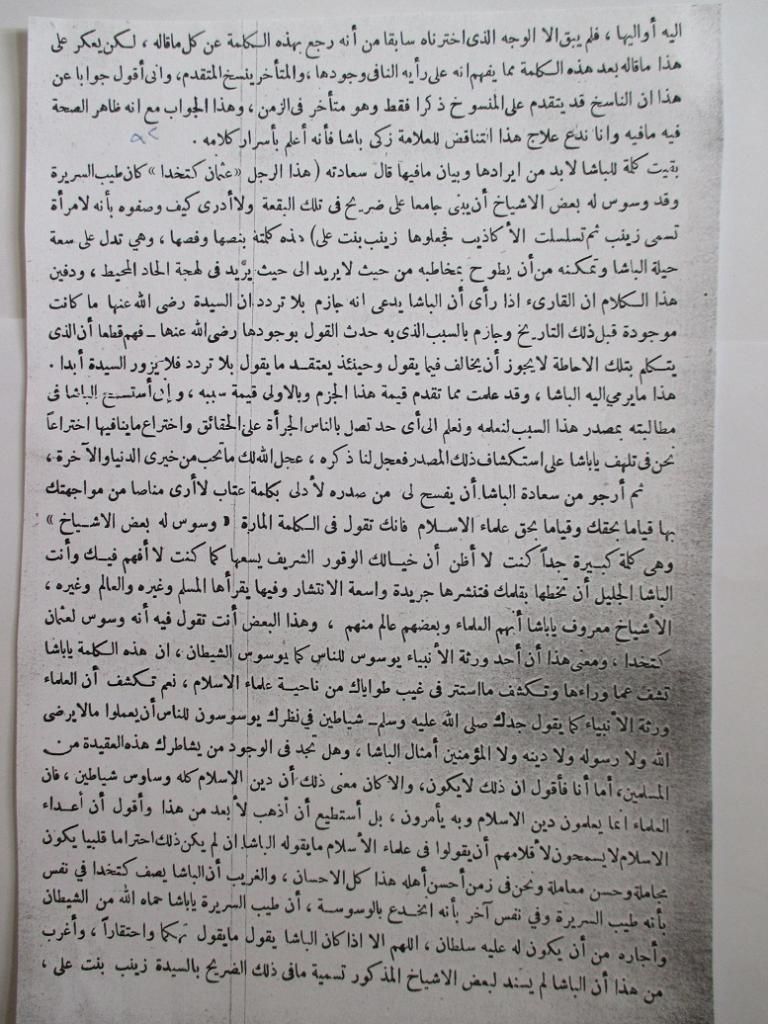 اليه أواليها ، فلم يبق الا الوجه الذى اخترناه سابقا من أنه رجع بهذه الكلمة عن كل ماقاله ، لكن يعكر على
هذا ماقاله بعد هذه الكلمة مما يفهم انه على رأيه النافى وجودها ، والمتأخر ينسخ المتقدم ، وانى أقول جوابا عن
هذا ان الناسخ قد يتقدم على المنسوخ ذكرا فقط وهو متأخر فى الزمن ، وهذا الجواب مع انه ظاهر الصحة
فيه مافيه وانا ندع علاج هذا التناقض للعلامة زكى باشا فأنه أعلم بأسرار كلامه .
بقيت كلمة للباشا لابد من ايرادها وبيان مافيها قال سعادته ( هذا الرجل «عثمان كتخدا» كان طيب السريرة
وقد وسوس له بعض الاشياخ أن يبنى جامعا على ضريح فى تلك البقعة ولا أدرى كيف وصفوه بأنه لامرأة
تسمى زينب ثم تسلسلت الأكاذيب فجعلوها زينب بنت على ) هذه كلمته بنصها وفصها ، وهي تدل على سعة
حيلة الباشا وتمكنه من أن يطوح بمخاطبه من حيث لا يريد الى حيث يريد فى لهجة الحاد المحيط ، ودفين
هذا الكلام ان القارىء اذا رأى أن الباشا يدعى انه جازم بلا تردد ان السيدة رضى الله عنها ما كانت
موجودة قبل ذلك التاريخ وجازم بالسبب الذى به حدث القول بوجودها رضى الله عنها ــ فهم قطعا أن الذى
يتكلم بتلك الاحاطة لا يجوز أن يخالف فيما يقول وحينئذ يعتقد مايقول بلا تردد فلا يزور السيدة أبدا .
هذا مايرمى اليه الباشا ، وقد علمت مما تقدم قيمة هذا الجزم وبالاولى قيمة سببه ، وإنى أستسمح الباشا فى
مطالبته بمصدر هذا السبب لنعلمه ونعلم الى أى حد تصل بالناس الجرأة على الحقائق واختراع ماينافيها اختراعاً
نحن فى تلهف ياباشا على استكشاف ذلك المصدر فعجل لنا ذكره ، عجل الله لك ماتحب من خيرى الدنيا والآخرة ،
ثم أرجو من سعادة الباشا أن يفسح لى من صدره لأدلى بكلمة عتاب لا أرى مناصا من مواجهتك
بها قياما بحقك وقياما بحق علماء الاسلام فانك تقول فى الكلمة المارة « وسوس له بعض الاشياخ »
وهى كلمة كبيرة جداً كنت لا أظن أن خيالك الوقور الشريف يسعها كما كنت لا أفهم فيك وأنت
الباشا الجليل أن تخطها بقلمك فتنشرها جريدة واسعة الانتشار وفيها يقرأها المسلم وغيره والعالم وغيره ،
الأشياخ معروف ياباشا أنهم العلماء وبعضهم عالم منهم ، وهذا البعض أنت تقول فيه أنه وسوس لعثمان
كتخدا ، ومعنى هذا أن أحد ورثة الأنبياء يوسوس للناس كما يوسوس الشيطان ، ان هذه الكلمة ياباشا
تشف عما وراءها وتكشف مااستتر فى غيب طواياك من ناحية علماء الاسلام ، نعم تكشف أن العلماء
ورثة الأنبياء كما يقول جدك صلى الله عليه وسلم ــ شياطين فى نظرك يوسوسون للناس أن يعملوا مالا يرضى
الله ولا رسوله ولا دينه ولا المؤمنين أمثال الباشا ، وهل تجد فى الوجود من يشاطرك هذه العقيدة من
المسلمين ، أما أنا فأقول ان ذلك لا يكون ، والا كان معنى ذلك أن دين الاسلام كله وساوس شياطين ، فان
العلماء انما يعلمون دين الاسلام وبه يأمرون ، بل أستطيع أن أذهب لأبعد من هذا وأقول أن أعداء
الاسلام لا يسمحون لأقلامهم أن يقولوا فى علماء الاسلام مايقوله الباشا ان لم يكن ذلك احتراما قلبيا يكون
مجاملة وحسن معاملة ونحن فى زمن أحسن أهله هذا كل الاحسان ، والغريب أن الباشا يصف كتخدا في نفس
بأنه طيب السريرة وفي نفس آخر بأنه انخدع بالوسوسة ، أن طيب السريرة ياباشا حماه الله من الشيطان
وأجاره من أن يكون له عليه سلطان ، اللهم الا اذا كان الباشا يقول مايقول تهكما واحتقاراً ، وأغرب
من هذا أن الباشا لم يسند لبعض الاشياخ المذكور تسمية مافى ذلك الضريح بالسيدة زينب بنت على ،